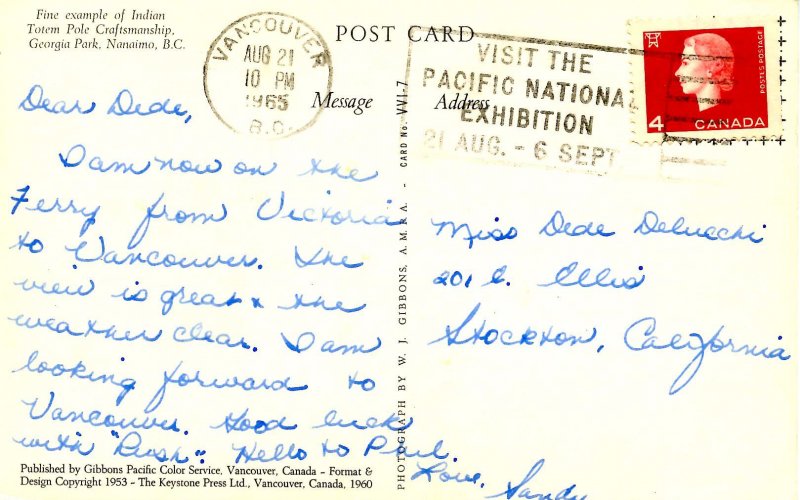 Fine example of Indian
Totem Pole Craftsmanship,
Georgia Park, Nanaimo, B.C.
POST CARD
VANCOUVER
AUG 21
10 PM
1965
B.C.
VISIT THE
PACIFIC NATIONAL
EXHIBITION
21 AUG. - 6 SEPT
POSTES POSTAGE
4 CANADA
Message
Address
Dear Dede,
I am now on the
Ferry from Victoria
to Vancouver. The
view is great & the
weather clear. I am
looking forward to
Vancouver. Good luck
with "Rush". Hello to Phil.
Love, Sandy
PHOTOGRAPH BY W. J. GIBBONS, A.M.R.A. - CARD No. VVI-7
Miss Dede Delucchi
201 E. Ellis
Stockton, California
Published by Gibbons Pacific Color Service, Vancouver, Canada – Format &
Design Copyright 1953 – The Keystone Press Ltd., Vancouver, Canada, 1960